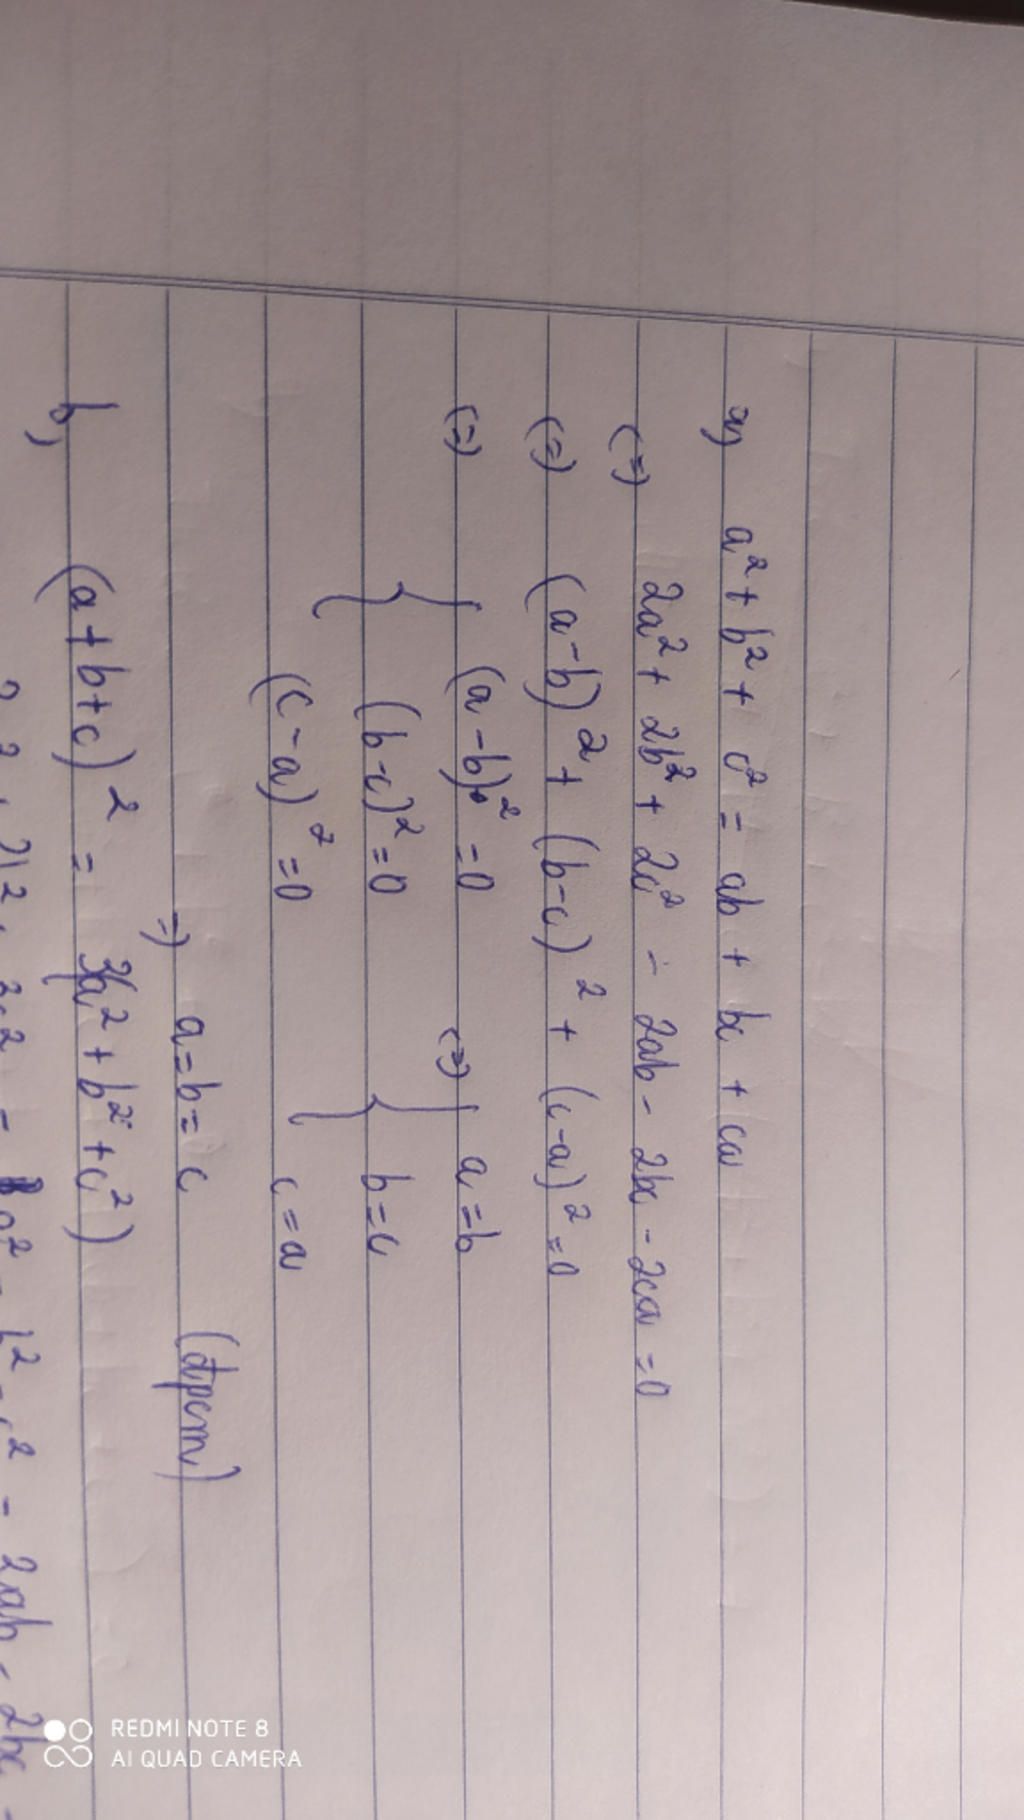 a, a² + b² + c² = ab + bc + ca
(=) 2a² + 2b² + 2c² - 2ab - 2bc - 2ca = 0
(=) (a-b)² + (b-c)² + (c-a)² = 0
(=) { (a-b)² = 0 (=) { a = b
(b-c)² = 0 b = c
(c-a)² = 0 c = a
=) a = b = c (đpcm)
b, (a+b+c)² = 3(a² + b² + c²)
- 2ab - 2bc -
REDMI NOTE 8
AI QUAD CAMERA